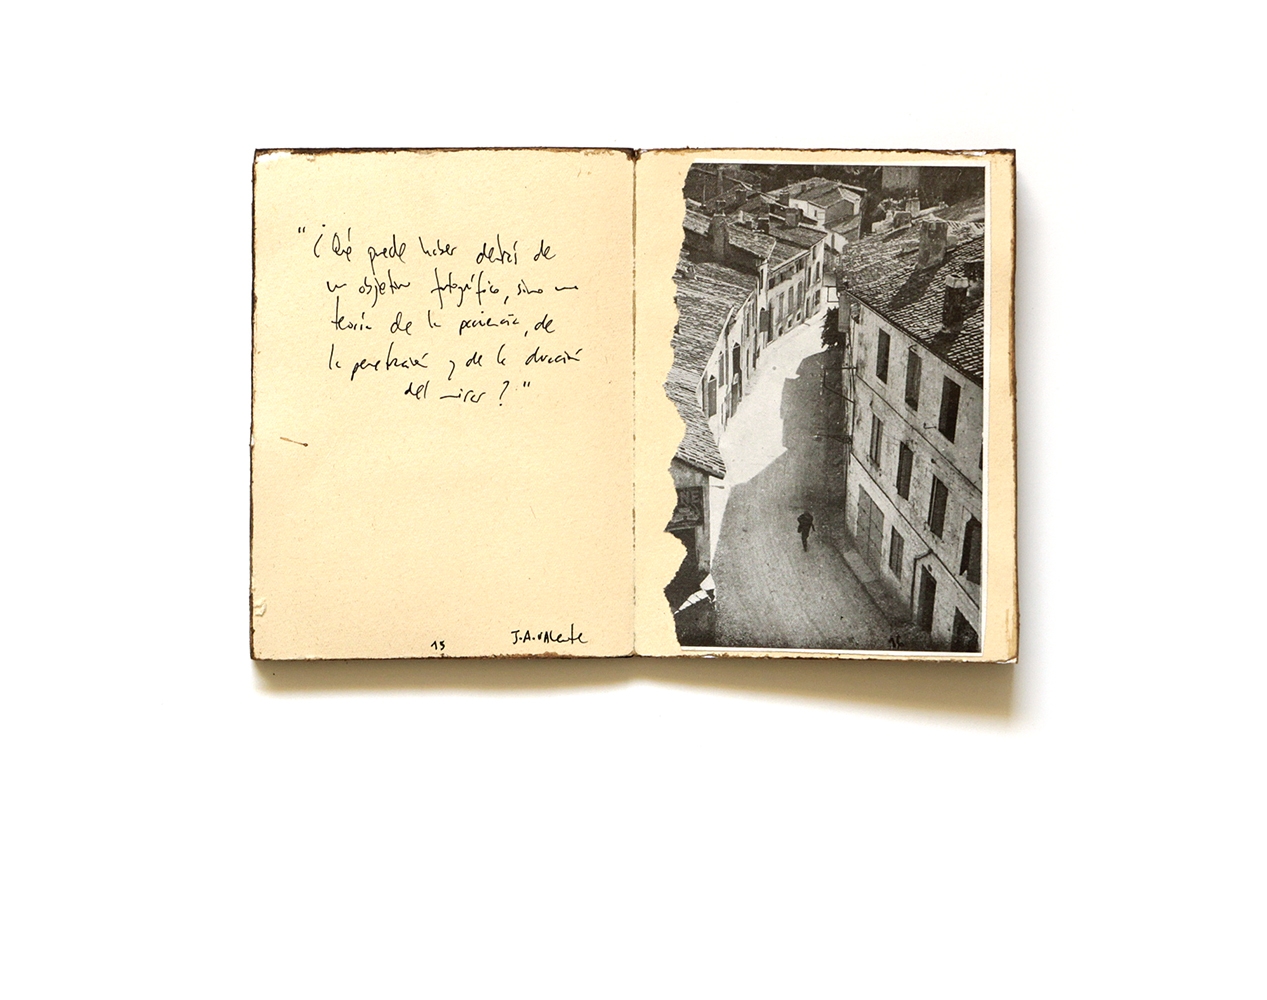 "¿Qué puede haber detrás de
un objetivo fotográfico, sino una
teoría de la paciencia, de
la penetración y de la duración
del mirar?"
J.A. Valente
15